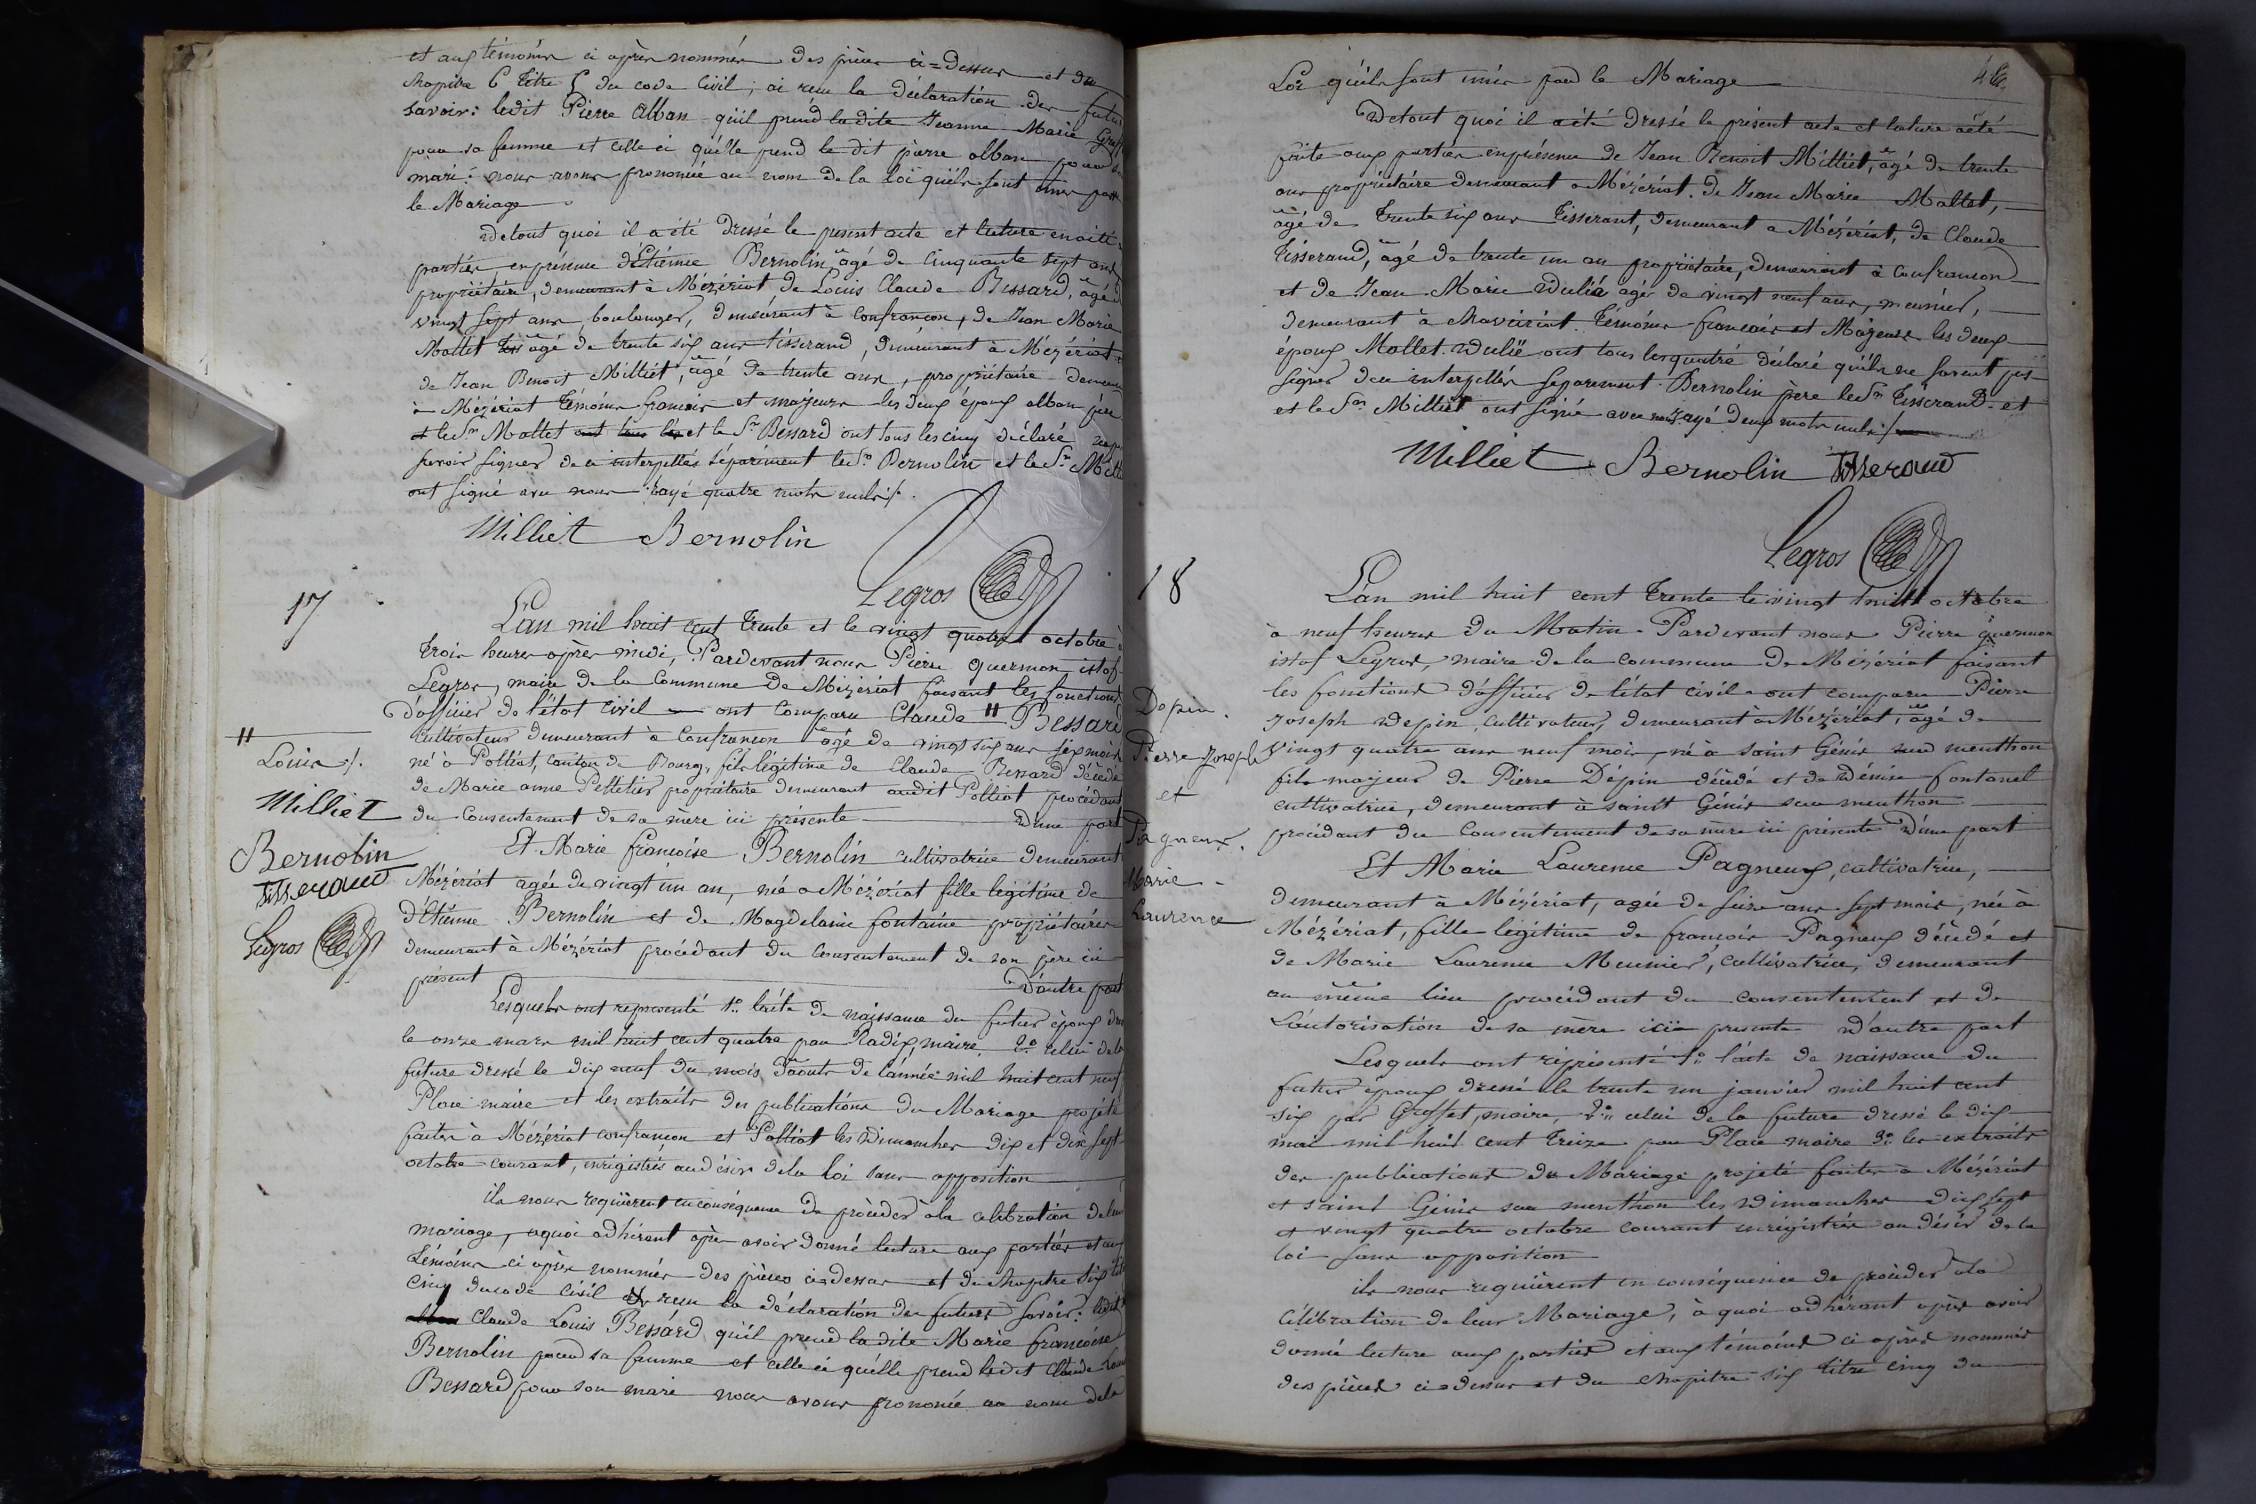 et aux témoins ci après nommés des pièces ci=dessus et du
chapitre 6 titre 5 du code Civil, ai reçu la déclaration des futurs
savoir: ledit Pierre Alban qu'il prend ladite Jeanne Marie
pour sa femme et celle ci qu'elle prend le dit pierre alban pour
mari: nous avons prononcé au nom de la loi qu'ils sont unis par
le Mariage
De tout quoi il a été dressé le present acte et lecture en a été
parties, en présence d'Etienne Bernolin âgé de Cinquante sept ans
propriétaire, demeurant à Mézériat de Louis Claude Bessard, âgé
vingt sept ans boulanger, demeurant à Confrançon, de Jean Marie
Mollet âgé de trente six ans tisserand, demeurant à Mézériat
de Jean Benoit Milliet, âgé de trente ans, propriétaire
à Mézériat témoins francais et majeurs les deux époux alban
et le Sr Mollet et le Sr Bessard ont tous les cinq déclaré
savoir signer de ce interpellés séparément le Sr Bernolin et le Sr
ont signé avec nous rayé quatre mots nuls ./.
Milliet Bernolin
Legros
17
L'an mil huit cent trente et le vingt quatre octobre à
trois heures après midi, Pardevant nous Pierre quermon istof
Legros, maire de la Commune de Mézériat faisant les fonctions
d'officier de l'état civil ont comparu Claude " Bessard
cultivateur demeurant à Confrançon âgé de vingt six ans sept mois
né à Polliat, canton de Bourg, fils légitime de Claude Bessard décédé
de Marie anne Pelletier propriétaire demeurant audit Polliat procédant
du Consentement de sa mère ici présente D'une part
"
Louis ./.
Milliet
Bernolin
Tisserand
Legros
Et Marie françoise Bernolin cultivatrice demeurant
Mézériat agée de vingt un an, née a Mézériat fille légitime de
d'Etienne Bernolin et de Magdelaine fontaine propriétaires
demeurant à Mézériat procédant du consentement de son père ici
présent D'autre part
Lesquels ont représenté 1o. l'acte de naissance du futur époux
le onze mars mil huit cent quatre par Radix, maire, 2o celui de la
future dressé le dix neuf du mois d'aoust de l'année mil huit cent neuf
Place maire et les extraits des publications du Mariage projeté
faites à Mézériat confrançon et Polliat les Dimanches dix et dix sept
octobre courant, enrégistrés au désir de la loi sans opposition
ils nous requièrent en conséquence de procèder à la célébration de leur
mariage, a quoi adhérant après avoir donné lecture aux parties et aux
témoins ci après nommés des pièces ci=dessus et du chapitre six
cinq du code civil reçu la déclaration des futurs savoir: ledit
Claude Louis Bessard qu'il prend la dite Marie francoise
Bernolin pour sa femme et celle ci qu'elle prend ledit Claude Louis
Bessard pour son mari nous avons prononcé au nom de la
Loi qu'ils sont unis par le Mariage
De tout quoi il a été dressé le présent acte et lecture a été
faite aux parties en présence de Jean Benoit Milliet, âgé de trente
ans propriétaire demeurant a Mézériat, de Jean Marie Mollet,
âgé de trente six ans tisserant, demeurant a Mézériat, de Claude
Tisserand, âgé de trente un an propriétaire, demeurant à Confrancon
et de Jean Marie Dulié agé de vingt neuf ans, meunier,
demeurant à Chaveiriat. témoins francais et Majeurs les deux
époux Mollet Dulié ont tous les quatre déclaré qu'ils ne savent pas
signer de ce interpellés séparement. Bernolin père le Sr Tisserand et
et le Sr Milliet ont signé avec nous rayé deux mots nuls ./.
Milliet Bernolin Tisserand
Legros
18
Depin
Pierre Joseph
et
Pagneux.
Marie
Laurence
L'an mil huit cent trente le vingt huit octobre
à neuf heures du Matin. Pardevant nous Pierre quermon
istof Legros, maire de la commune de Mézériat faisant
les fonctions d'officier de l'état civil ont comparu Pierre
Joseph Depin, cultivateur, demeurant à Mézériat, âgé de
vingt quatre ans neuf mois, né à saint Génis sur menthon
fils majeur de Pierre Dépin décédé et de Dénise fontanel
cultivatrice, demeurant à sanit Génis sur menthon
procédant du Consentement de sa mère ici présente D'une part
Et Marie Laurence Pagneux, cultivatrice,
demeurant à Mézériat, agée de seize ans sept mois, née à
Mézériat, fille légitime de francois Pagneux décédé et
de Marie Laurence Meunier, cultivatrice, demeurant
au même lieu procédant du consentement et de
l'autorisation de sa mère icie presente D'autre part
Lesquels ont réprésenté 1o. l'acte de naissance du
futur époux dressé le trente un janvier mil huit cent
six par Groffet, maire, 2o. celui de la future dressé le dix
mai mil huit cent treize par Place maire 3o. les extraits
des publications du Mariage projeté faites à Mézériat
et saint Génis sur menthon les Dimanches dix sept
et vingt quatre octobre courant enrégistrés au désir de la
loi sans opposition
ils nous requièrent en conséquence de procèder à la
célébration de leur Mariage, à quoi adhérant après avoir
donné lecture aux parties et aux témoins ci après nommés
des pièces ci=dessus et du chapitre six titre cinq du